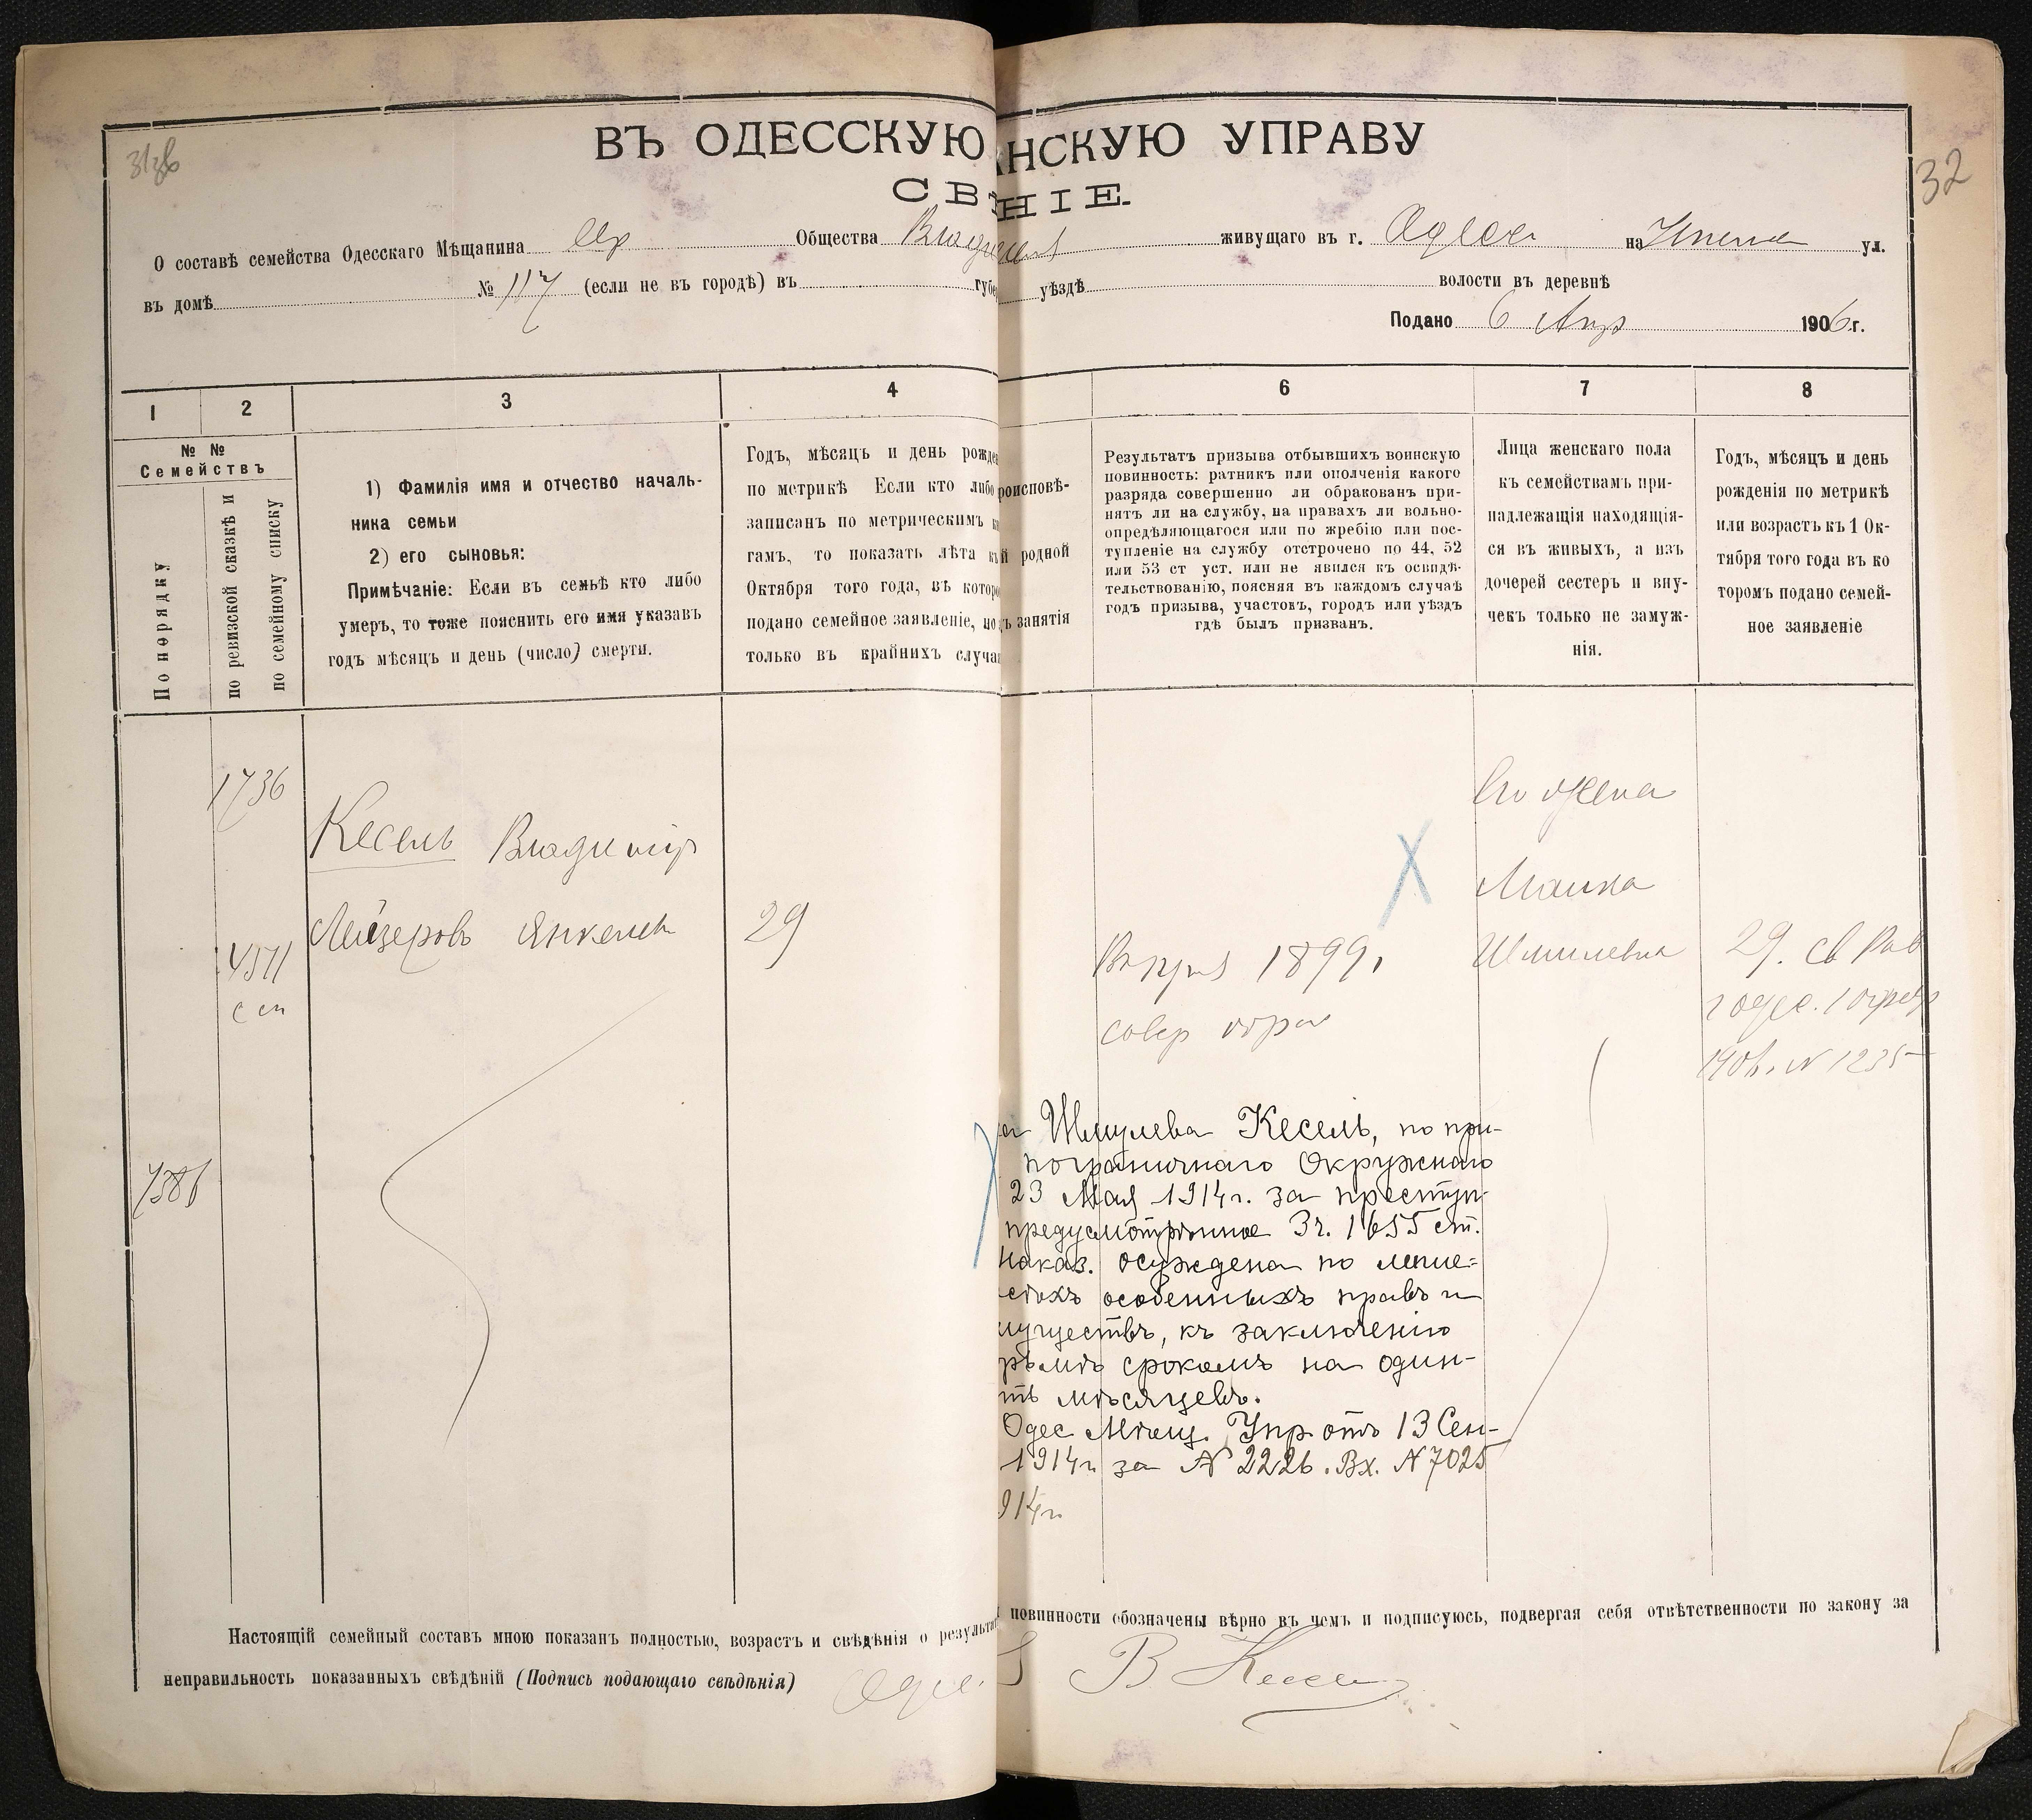 ВЪ ОДЕССКУЮ
НСКУЮ УПРАВУ
СВ
НІЕ.
32
О составѣ семейства Одесскаго Мѣщанина Евр Общества
живущаго въ г. Одесса на ул.
въ домѣ № 117 (если не въ городѣ) въ губе
уѣздѣ волости въ деревнѣ
Подано 6 Апр 1906 г.
1 2 3 4
6 7 8
№ №
Семействъ
По порядку
по ревизской сказкѣ и
по семейному списку
1) Фамилія имя и отчество началь-
ника семьи
2) его сыновья:
Примѣчаніе: Если въ семьѣ кто либо
умеръ, то тоже пояснить его имя указавъ
годъ мѣсяцъ и день (число) смерти.
Годъ, мѣсяцъ и день рожде
по метрикѣ Если кто либо
записанъ по метрическимъ
гамъ, то показать лѣта
Октября того года, въ которо
подано семейное заявленіе, но
только въ крайнихъ случа
роисповѣ-
й родной
занятія
Результатъ призыва отбывшихъ воинскую
повинность: ратникъ или ополченія какого
разряда совершенно ли обракованъ при-
нятъ ли на службу, на правахъ ли вольно-
опредѣляющагося или по жребію или пос-
тупленіе на службу отстрочено по 44, 52
или 53 ст уст. или не явился къ освидѣ-
тельствованію, поясняя въ каждомъ случаѣ
годъ призыва, участокъ, городъ или уѣздъ
гдѣ былъ призванъ.
Лица женскаго пола
къ семействамъ при-
надлежащія находящія-
ся въ живыхъ, а изъ
дочерей сестеръ и вну-
чекъ только не замуж-
нія.
Годъ, мѣсяцъ и день
рожденія по метрикѣ
или возрастъ къ 1 Ок-
тября того года въ ко
торомъ подано семей-
ное заявленіе
1736
Кесель Владимір
Лейзеровъ Янкелев
29
4511
сп
7386
Въ приз 1899 г
совер обра
Его жена
Малка
Шмилевна
29. св Рав
г Одес. 1 февр
1906. N 1235
а Шмулева Кесель, по при-
пограничнаго Окружнаго
23 Мая 1914 г. за преступ-
предусмотрѣнное 3 ч. 1655 ст.
Наказ. осуждена по лише-
особенныхъ правъ и
муществъ, къ заключенію
рьмѣ срокомъ на один-
ть мѣсяцевъ.
Одес Мѣщ. Упр отъ 13 Сен-
1914 г за № 2226. Вх. № 7025
914 г
Настоящій семейный составъ мною показанъ полностью, возрастъ и свѣдѣнія о результат
повинности обозначены вѣрно въ чемъ и подписуюсь, подвергая себя отвѣтственности по закону за
неправильность показанныхъ свѣдѣній (Подпись подающаго свѣдѣнія)
В Кесел